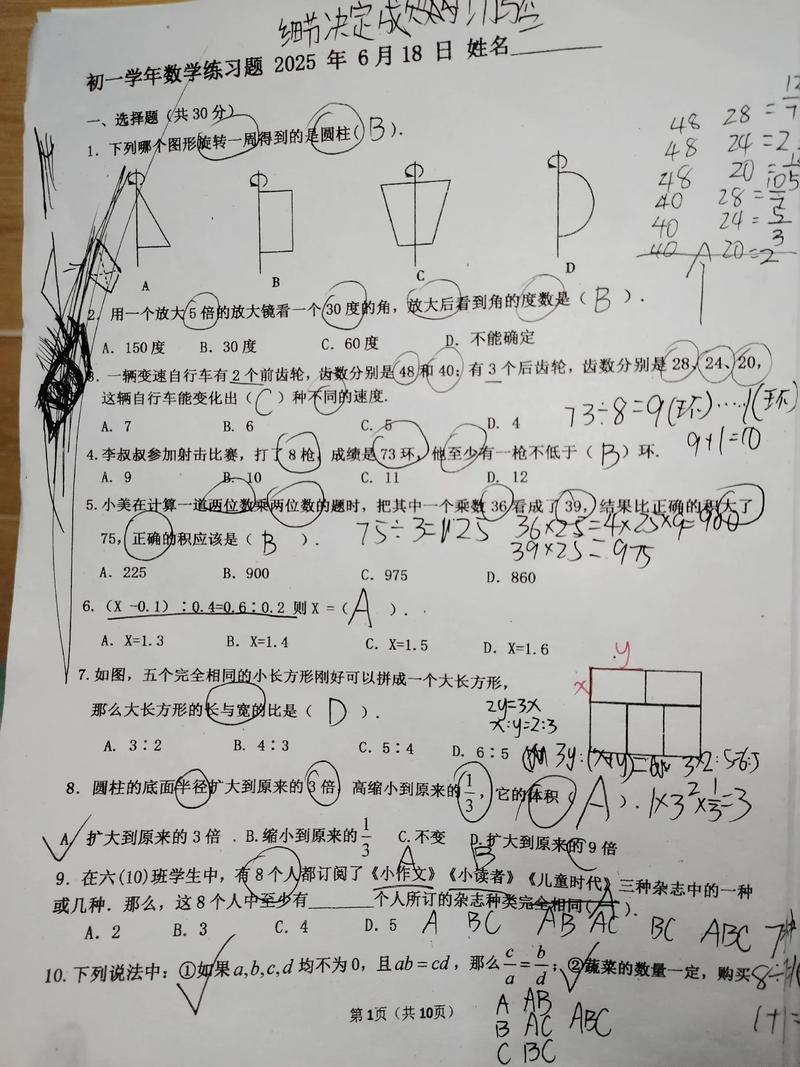 细节决定成败
初一学年数学练习题 2025 年 6 月 18 日 姓名
一、选择题（共 30 分）
1. 下列哪个图形旋转一周得到的是圆柱（ B ）.
A B C D
48 28 =
48 24 = 2
48 20 =
40 28 = 10/7
40 24 = 5/3
40 20 = 2
2. 用一个放大 5 倍的放大镜看一个 30 度的角，放大后看到角的度数是（ B ）.
A. 150 度 B. 30 度 C. 60 度 D. 不能确定
3. 一辆变速自行车有 2 个前齿轮，齿数分别是 48 和 40；有 3 个后齿轮，齿数分别是 28、24、20，
这辆自行车能变化出（ C ）种不同的速度.
A. 7 B. 6 C. 5 D. 4
73÷8=9(环)‥‥1(环)
9+1=10
4. 李叔叔参加射击比赛，打了 8 枪，成绩是 73 环，他至少有一枪不低于（ B ）环.
A. 9 B. 10 C. 11 D. 12
5. 小美在计算一道两位数乘两位数的题时，把其中一个乘数 36 看成了 39，结果比正确的积大了
75，正确的积应该是（ B ）.
75÷3=25 36×25=4×25×9=900
39×25=975
A. 225 B. 900 C. 975 D. 860
6. （X -0.1）：0.4=0.6：0.2 则 X =（ A ）.
A. X=1.3 B. X=1.4 C. X=1.5 D. X=1.6
7. 如图，五个完全相同的小长方形刚好可以拼成一个大长方形，
那么大长方形的长与宽的比是（ D ）.
y
x
2y=3x
x:y=2:3
A. 3：2 B. 4：3 C. 5：4 D. 6：5
3y:(x+y)=
8. 圆柱的底面半径扩大到原来的 3 倍，高缩小到原来的 1/3，它的体积（ A ）.
1×3²×1/3=3
A. 扩大到原来的 3 倍 . B.缩小到原来的 1/3 C.不变 D.扩大到原来的 9 倍
A B C
9. 在六(10)班学生中，有 8 个人都订阅了《小作文》《小读者》《儿童时代》三种杂志中的一种
或几种．那么，这 8 个人中至少有______个人所订的杂志种类完全相同（ A ）.
A. 2 B. 3 C. 4 D. 5
A BC AB AC BC ABC
10. 下列说法中：①如果 a,b,c,d 均不为 0，且 ab=cd，那么 c/a = b/d；②蔬菜的数量一定，购买
A AB
B AC ABC
C BC
第 1页（共 10页）